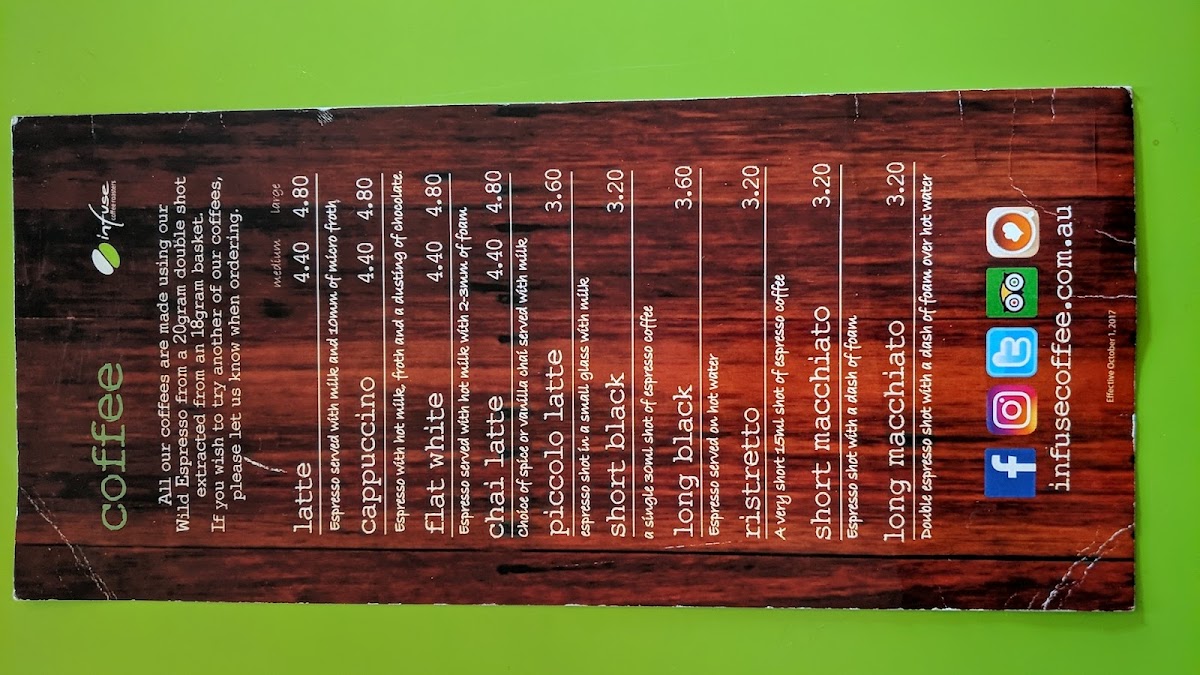 infuse
coffee roasters
coffee
All our coffees are made using our
Wild Espresso from a 20gram double shot
extracted from an 18gram basket.
If you wish to try another of our coffees,
please let us know when ordering.
medium large
latte 4.40 4.80
Espresso served with milk and 10mm of micro froth
cappuccino 4.40 4.80
Espresso with hot milk, froth and a dusting of chocolate.
flat white 4.40 4.80
Espresso served with hot milk with 2-3mm of foam
chai latte 4.40 4.80
Choice of spice or vanilla chai served with milk
piccolo latte 3.60
espresso shot in a small glass with milk
short black 3.20
a single 30ml shot of espresso coffee
long black 3.60
Espresso served on hot water
ristretto 3.20
A very short 15ml shot of espresso coffee
short macchiato 3.20
Espresso shot with a dash of foam
long macchiato 3.20
Double espresso shot with a dash of foam over hot water
infusecoffee.com.au
Effective October 1, 2017